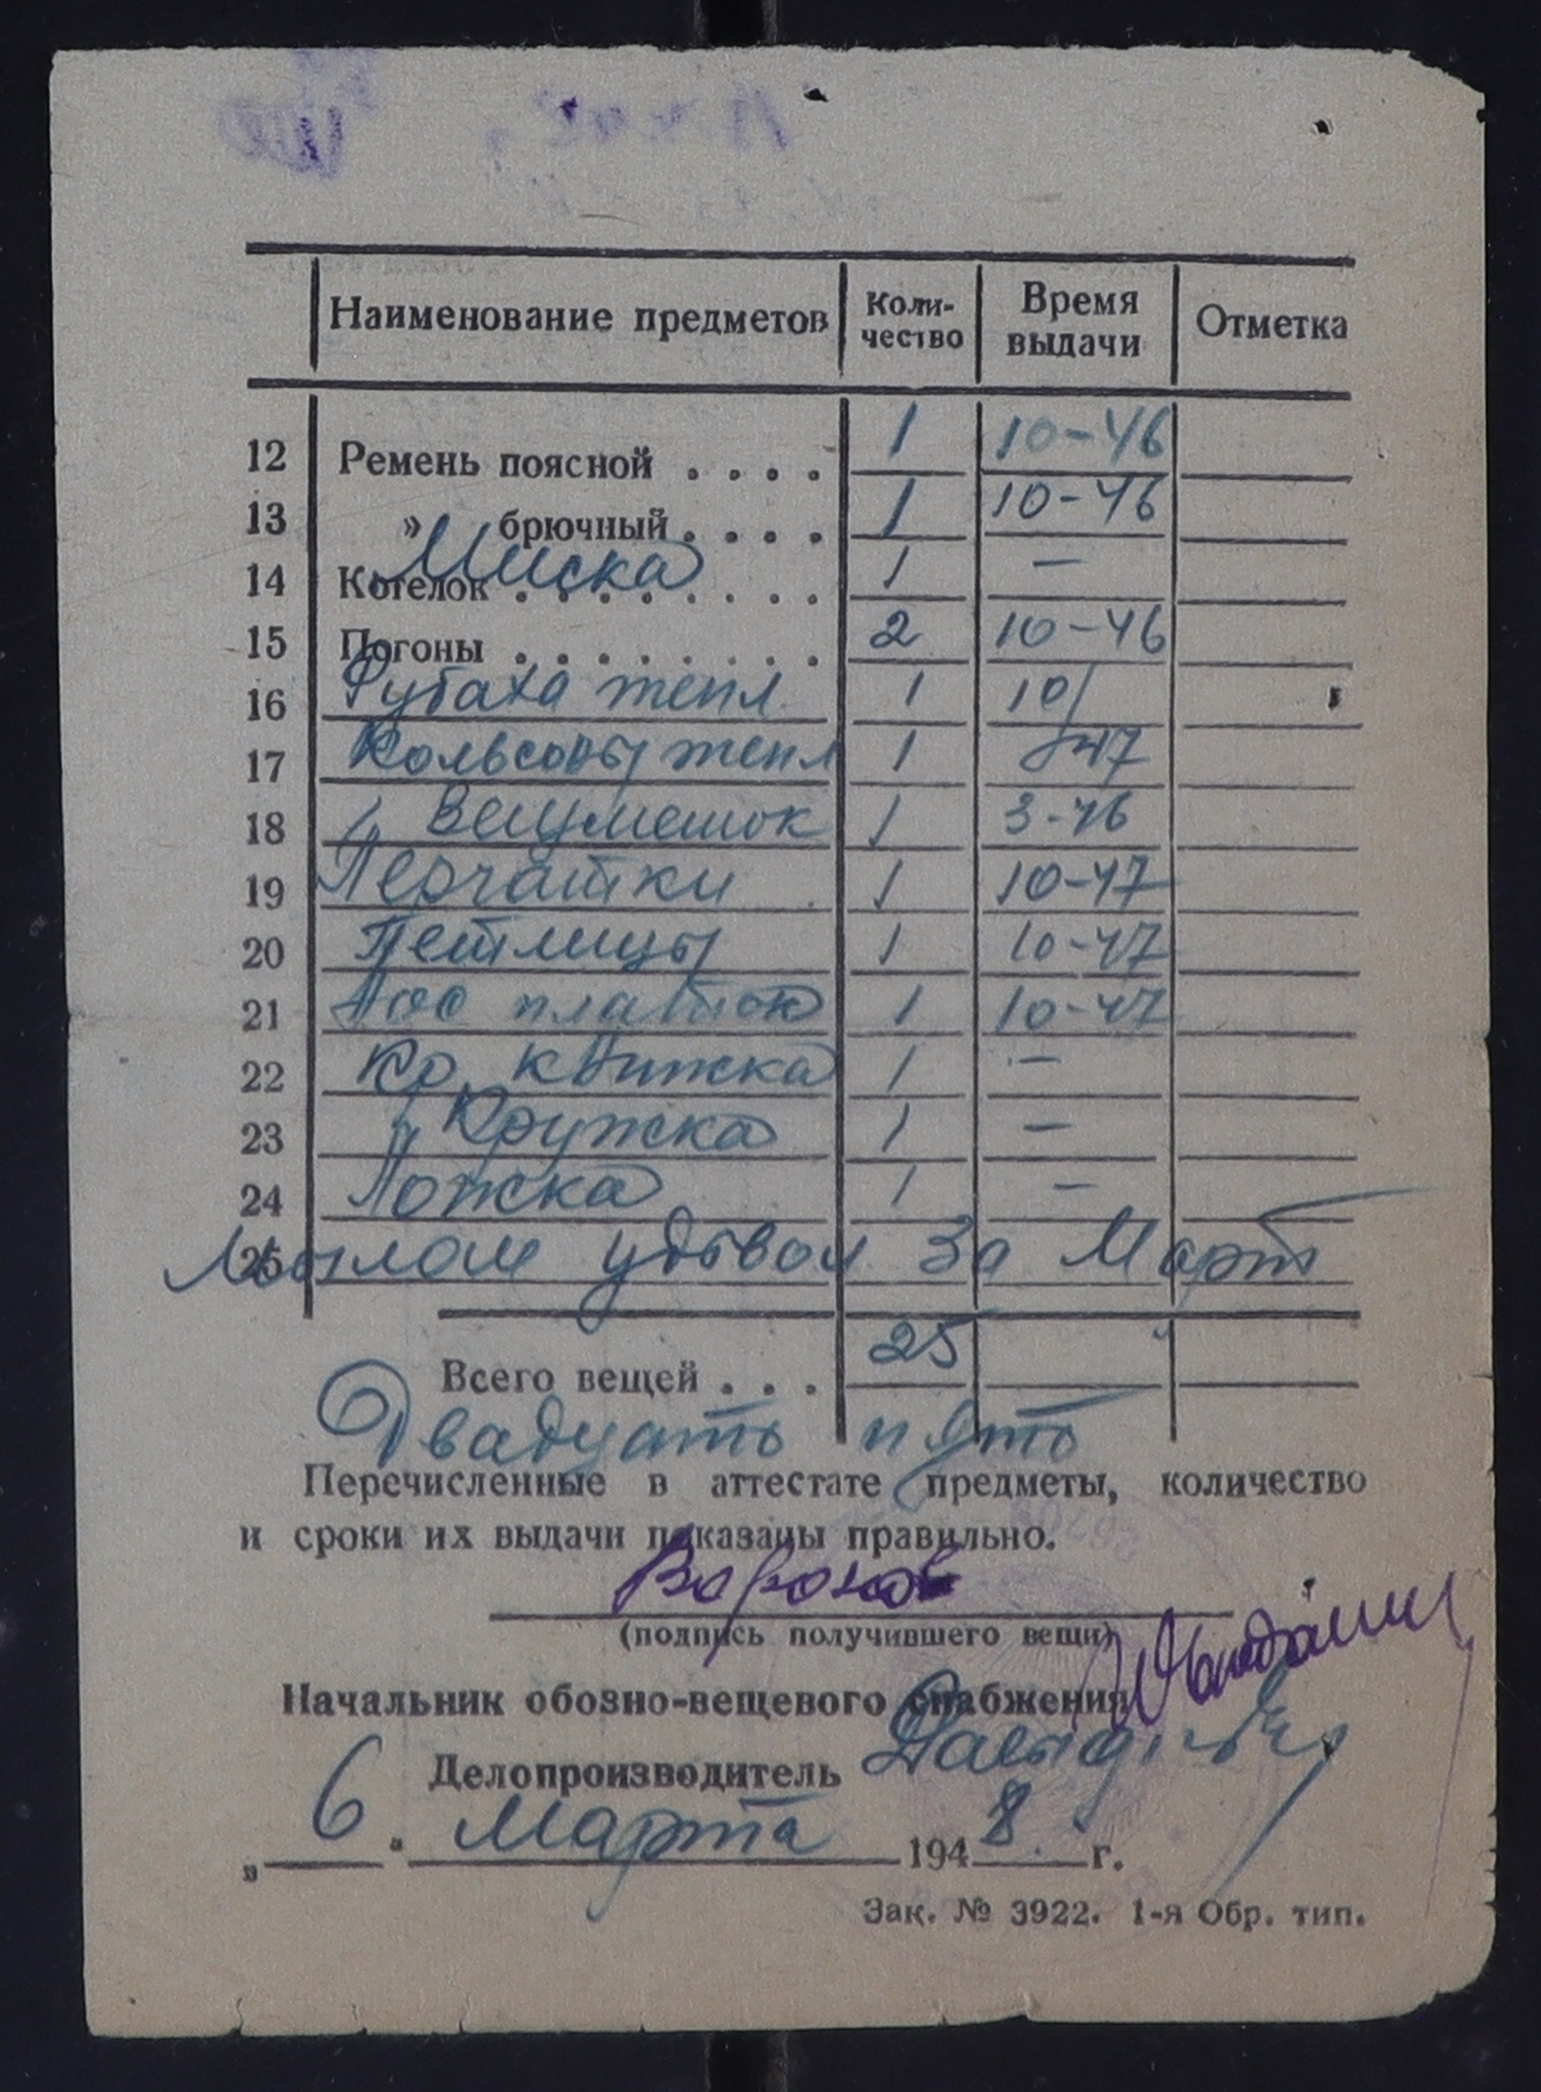 Наименование предметов Коли-чество Время выдачи Отметка
12 Ремень поясной . . . . 1 10-46
13 » брючный . . . . 1 10-46
14 Котелок Миска . . . . . . . . 1 —
15 Погоны . . . . . . . . 2 10-46
16 Рубаха тепл 1 10/
17 Кольсоны тепл 1 47
18 Вещмешок 1 3-46
19 Перчатки 1 10-47
20 Петлицы 1 10-47
21 Нос платок 1 10-47
22 Кр. книжка 1 —
23 Кружка 1 —
24 Ложка 1 —
25 Мылом удовол за Март
Всего вещей . . . 25
Двадцать пять
Перечисленные в аттестате предметы, количество
и сроки их выдачи показаны правильно.
Воронов
(подпись получившего вещи)
Начальник обозно-вещевого снабжения
Делопроизводитель
„ 6 " Марта 1948 г.
Зак. № 3922. 1-я Обр. тип.